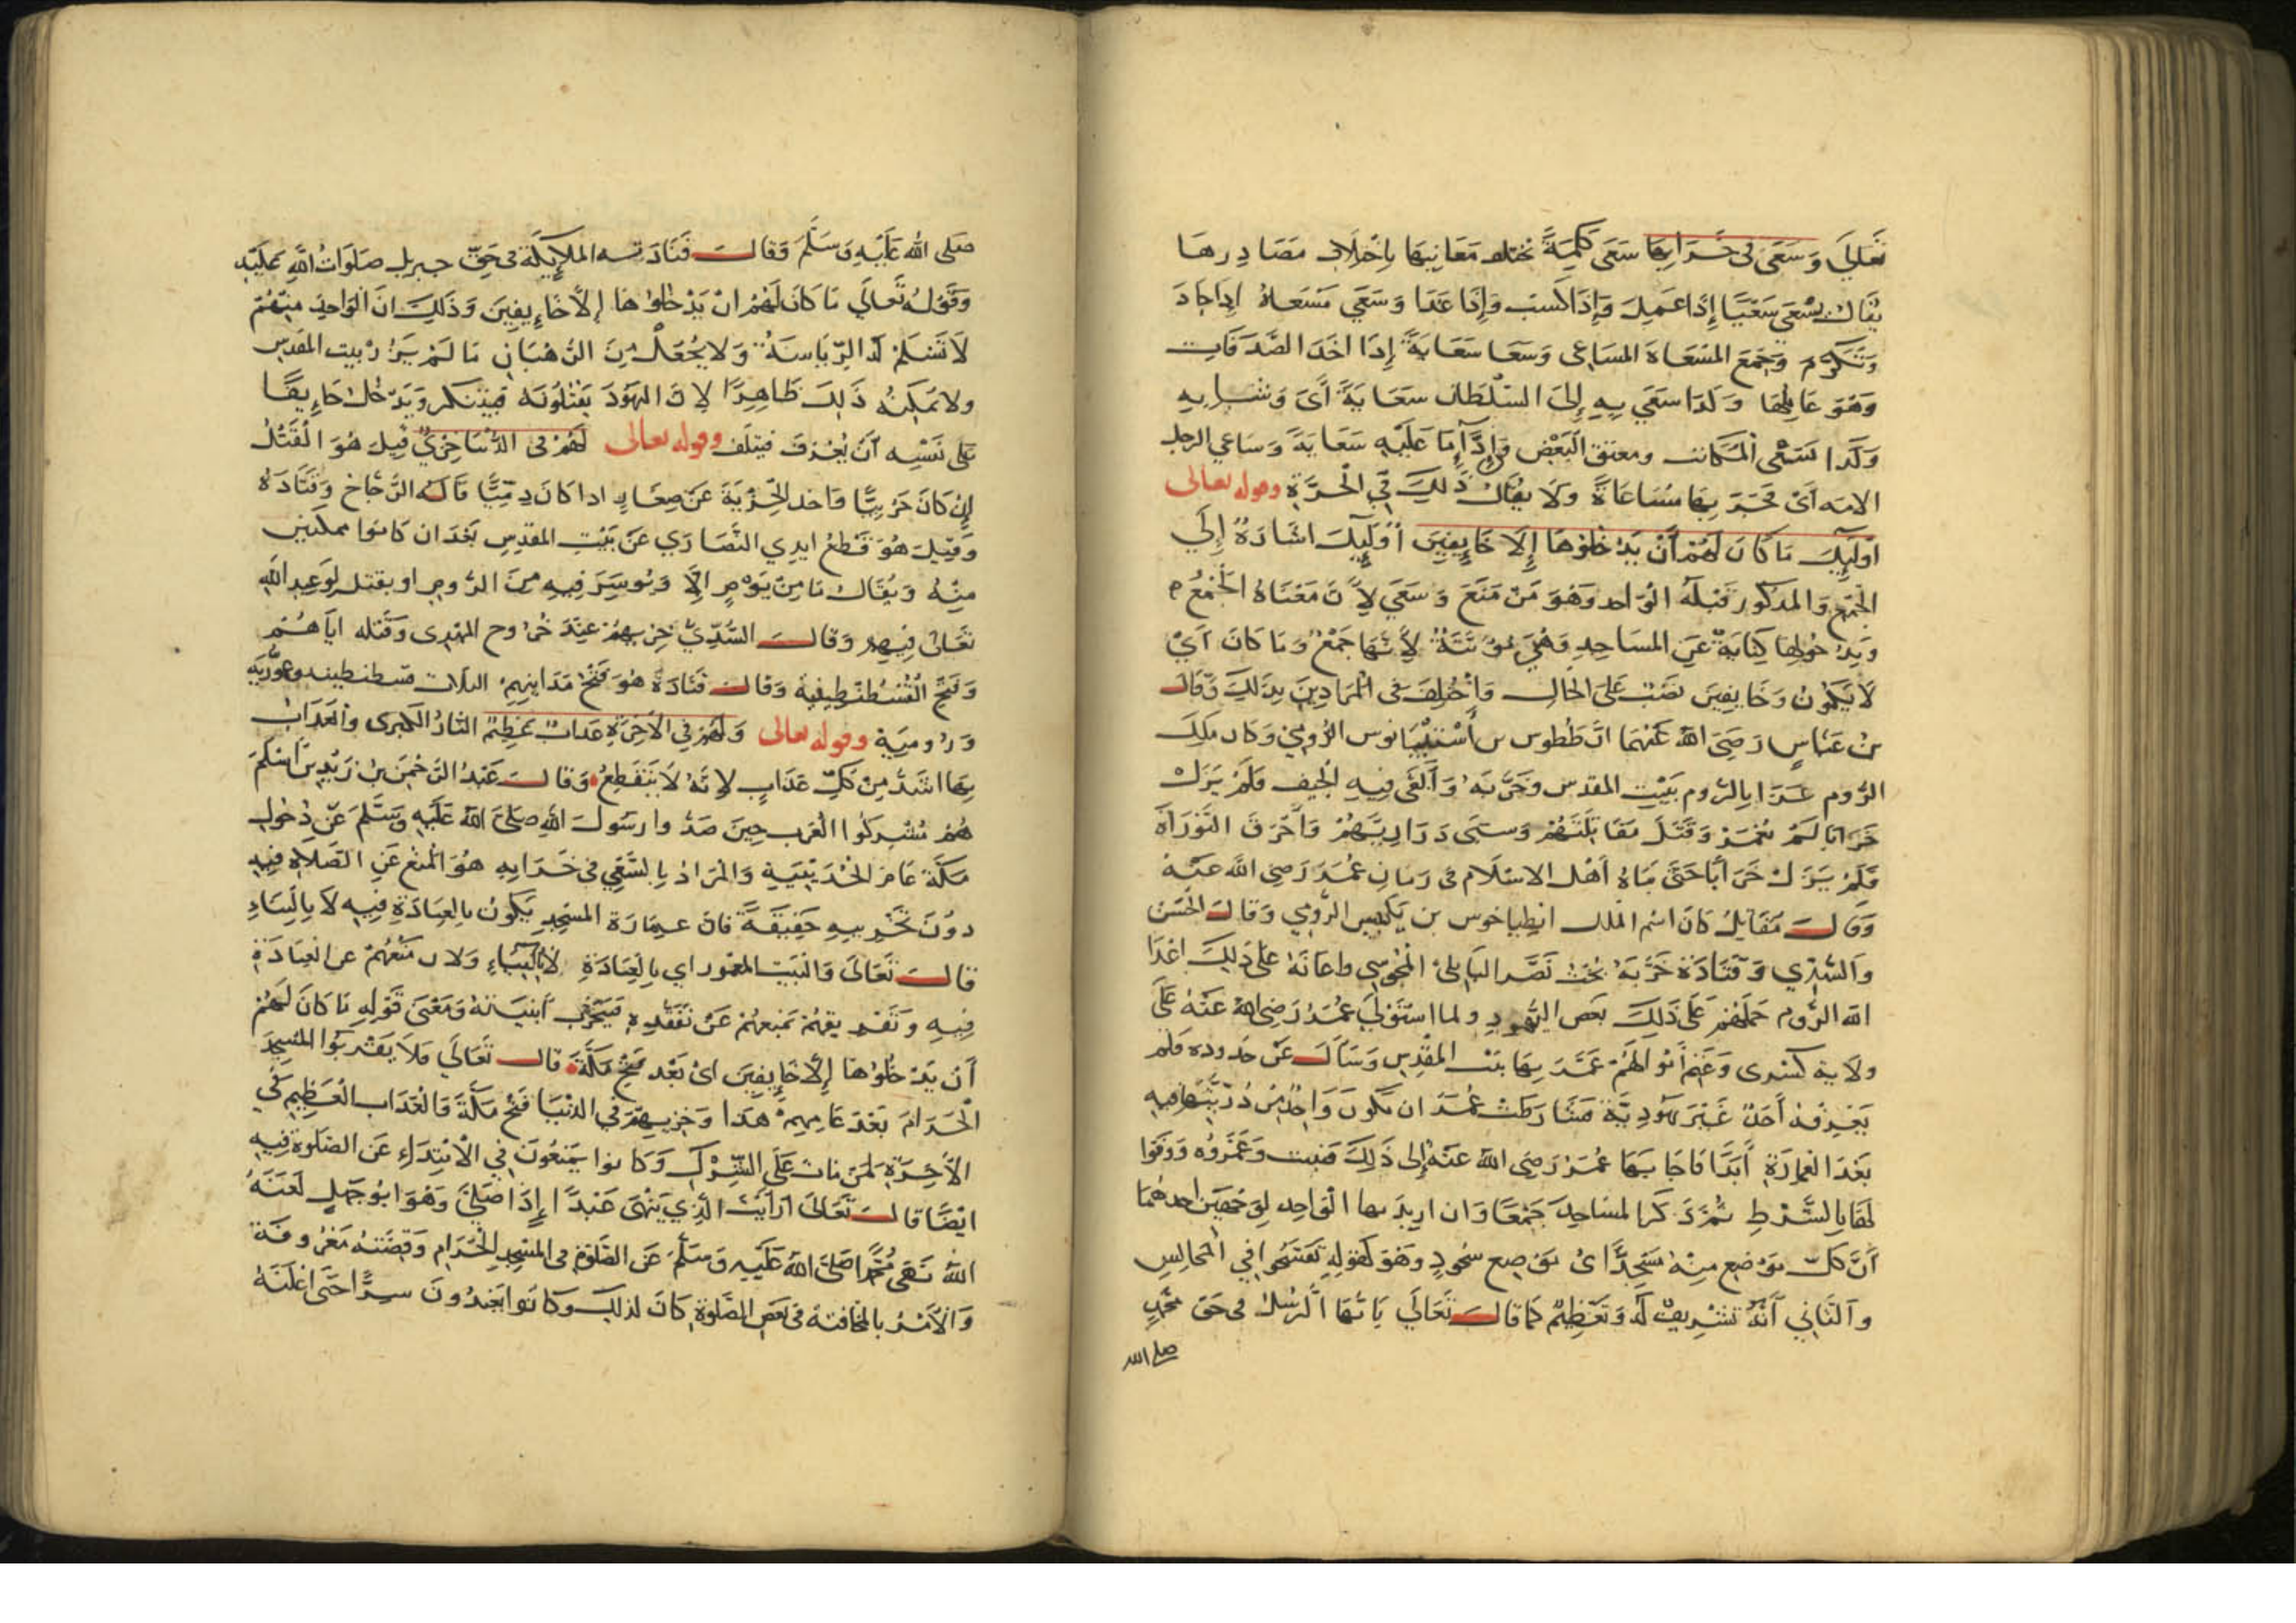 تعالى وسعى في خرابها سعى كلمة تختلف معانيها باختلاف مصادرها
يقال سعى سعيا إذا عمل وإذا كسب وإذا عدا وسعى مسعاة إذا جاد
وتكرم وجمع المسعاة المساعي وسعا سعاية إذا اخذ الصدقات
وهو عاملها وكذا سعى به إلى السلطان سعاية أي وشى به
وكذا سعى المكاتب ومعتق البعض وإذا ما عليه سعاية وساعى الرجل
الامه أي فجر بها مساعاة ولا يقال ذلك في الحرة وقوله تعالى
أوليك ما كان لهم أن يدخلوها إلا خايفين أوليك اشارة إلى
الجمع والمذكور قبله الواحد وهو من منع وسعى لأن معناه الجمع م
ويدخولها كناية عن المساجد وهي مؤنثة لأنها جمع وما كان أي
لا يكون وخايفين نصب على الحال واختلف في المرادين بذلك وقال
بن عباس رضي الله عنهما ان ططوس بن أسنتيبانوس الرومي وكان ملك
الروم غزا بالروم بيت المقدس وخربه وألقى فيه الجيف فلم يزل
خرابا لم يعمر وقتل مقاتلتهم وسبى ذراريهم وأحرق التوراة
فلم يزل خرابا حتى بناه أهل الاسلام في زمان عمر رضي الله عنه
وقال مقاتل كان اسم الملك انطياخوس بن الرومي وقال الحسن
والسدي وقتادة خربه بخت نصر البابلي المجوسي واعانه على ذلك اعدا
الله الروم حملهم على ذلك بعض اليهود ولما استولى عمر رضي الله عنه على
ولاية كسرى وغنم أموالهم عمر بها بيت المقدس وسأل عن حدوده فلم
يعرفه أحد غير يهودية شارطت عمر ان يكون واحد من ذريتها فيه
بعد العمارة أبدا فاجابها عمر رضي الله عنه إلى ذلك فبنت وعمروه ووفوا
لها بالشرط ثم ذكر المساجد جمعا وان اريد بها الواحد لوجهين احدهما
أن كل موضع منه مسجد أي موضع سجود وهو كقوله تفسحوا في المجالس
والثاني أنه تشريف له وتعظيم كما قال تعالى يا أيها الرسل في حق محمد
صلى الله
صلى الله عليه وسلم وقال فنادته الملايكة في حق جبريل صلوات الله عليه
وقوله تعالى ما كان لهم ان يدخلوها إلا خايفين وذلك ان الواحد منهم
لا تسلم له الرياسة ولا يجعل من الرهبان ما لم يزر بيت المقدس
ولا يمكنه ذلك ظاهرا لان اليهود يقتلونه فيتنكر ويدخل خايفا
على نفسه أن يعرف فيتلف وقوله تعالى لهم في الدنيا خزي قيل هو القتل
إن كان حربيا واخذ الجزية عن صغار اذا كان ذميا قاله الزجاج وقتادة
وقيل هو قطع ايدي النصارى عن بيت المقدس بعد ان كانوا ممكنين
منه ويقال ما من يوم إلا ويوسر فيه من الروم او يقتل لوعيد الله
تعالى فيهم وقال السدي خزيهم عند خروج المهدي وقتله اياهم
وفتح القسطنطينية وقال قتادة هو فتح مداينهم الثلاث قسطنطينه وعمورية
ورومية وقوله تعالى ولهم في الآخرة عذاب عظيم النار الكبرى والعذاب
بها اشد من كل عذاب لانه لا ينقطع وقال عبد الرحمن بن زيد بن أسلم
هم مشركوا العرب حين صدوا رسول الله صلى الله عليه وسلم عن دخول
مكة عام الحديبية والمراد بالسعي في خرابه هو المنع عن الصلاة فيه
دون تخريبه حقيقة فان عمارة المسجد يكون بالعبادة فيه لا بالبناء
قال تعالى والبيت المعمور اي بالعبادة لا بالبناء ولان منعهم عن العبادة
فيه وتفريقهم يمنعهم عن تفقده فيخرب أبنيته ومعنى قوله ما كان لهم
أن يدخلوها إلا خايفين أي بعد فتح مكة قال تعالى فلا يقربوا المسجد
الحرام بعد عامهم هذا وخزيهم في الدنيا فتح مكة والعذاب العظيم في
الآخرة لمن مات على الشرك وكانوا يمنعون في الابتداء عن الصلوة فيه
ايضا قال تعالى ارأيت الذي ينهى عبدا إذا صلى وهو ابو جهل لعنه
الله نهى محمدا صلى الله عليه وسلم عن الصلوة في المسجد الحرام وقصته معروفة
والأمر بالمخافتة في بعض الصلوة كان لذلك وكانوا يعبدون سرا حتى اعلنه